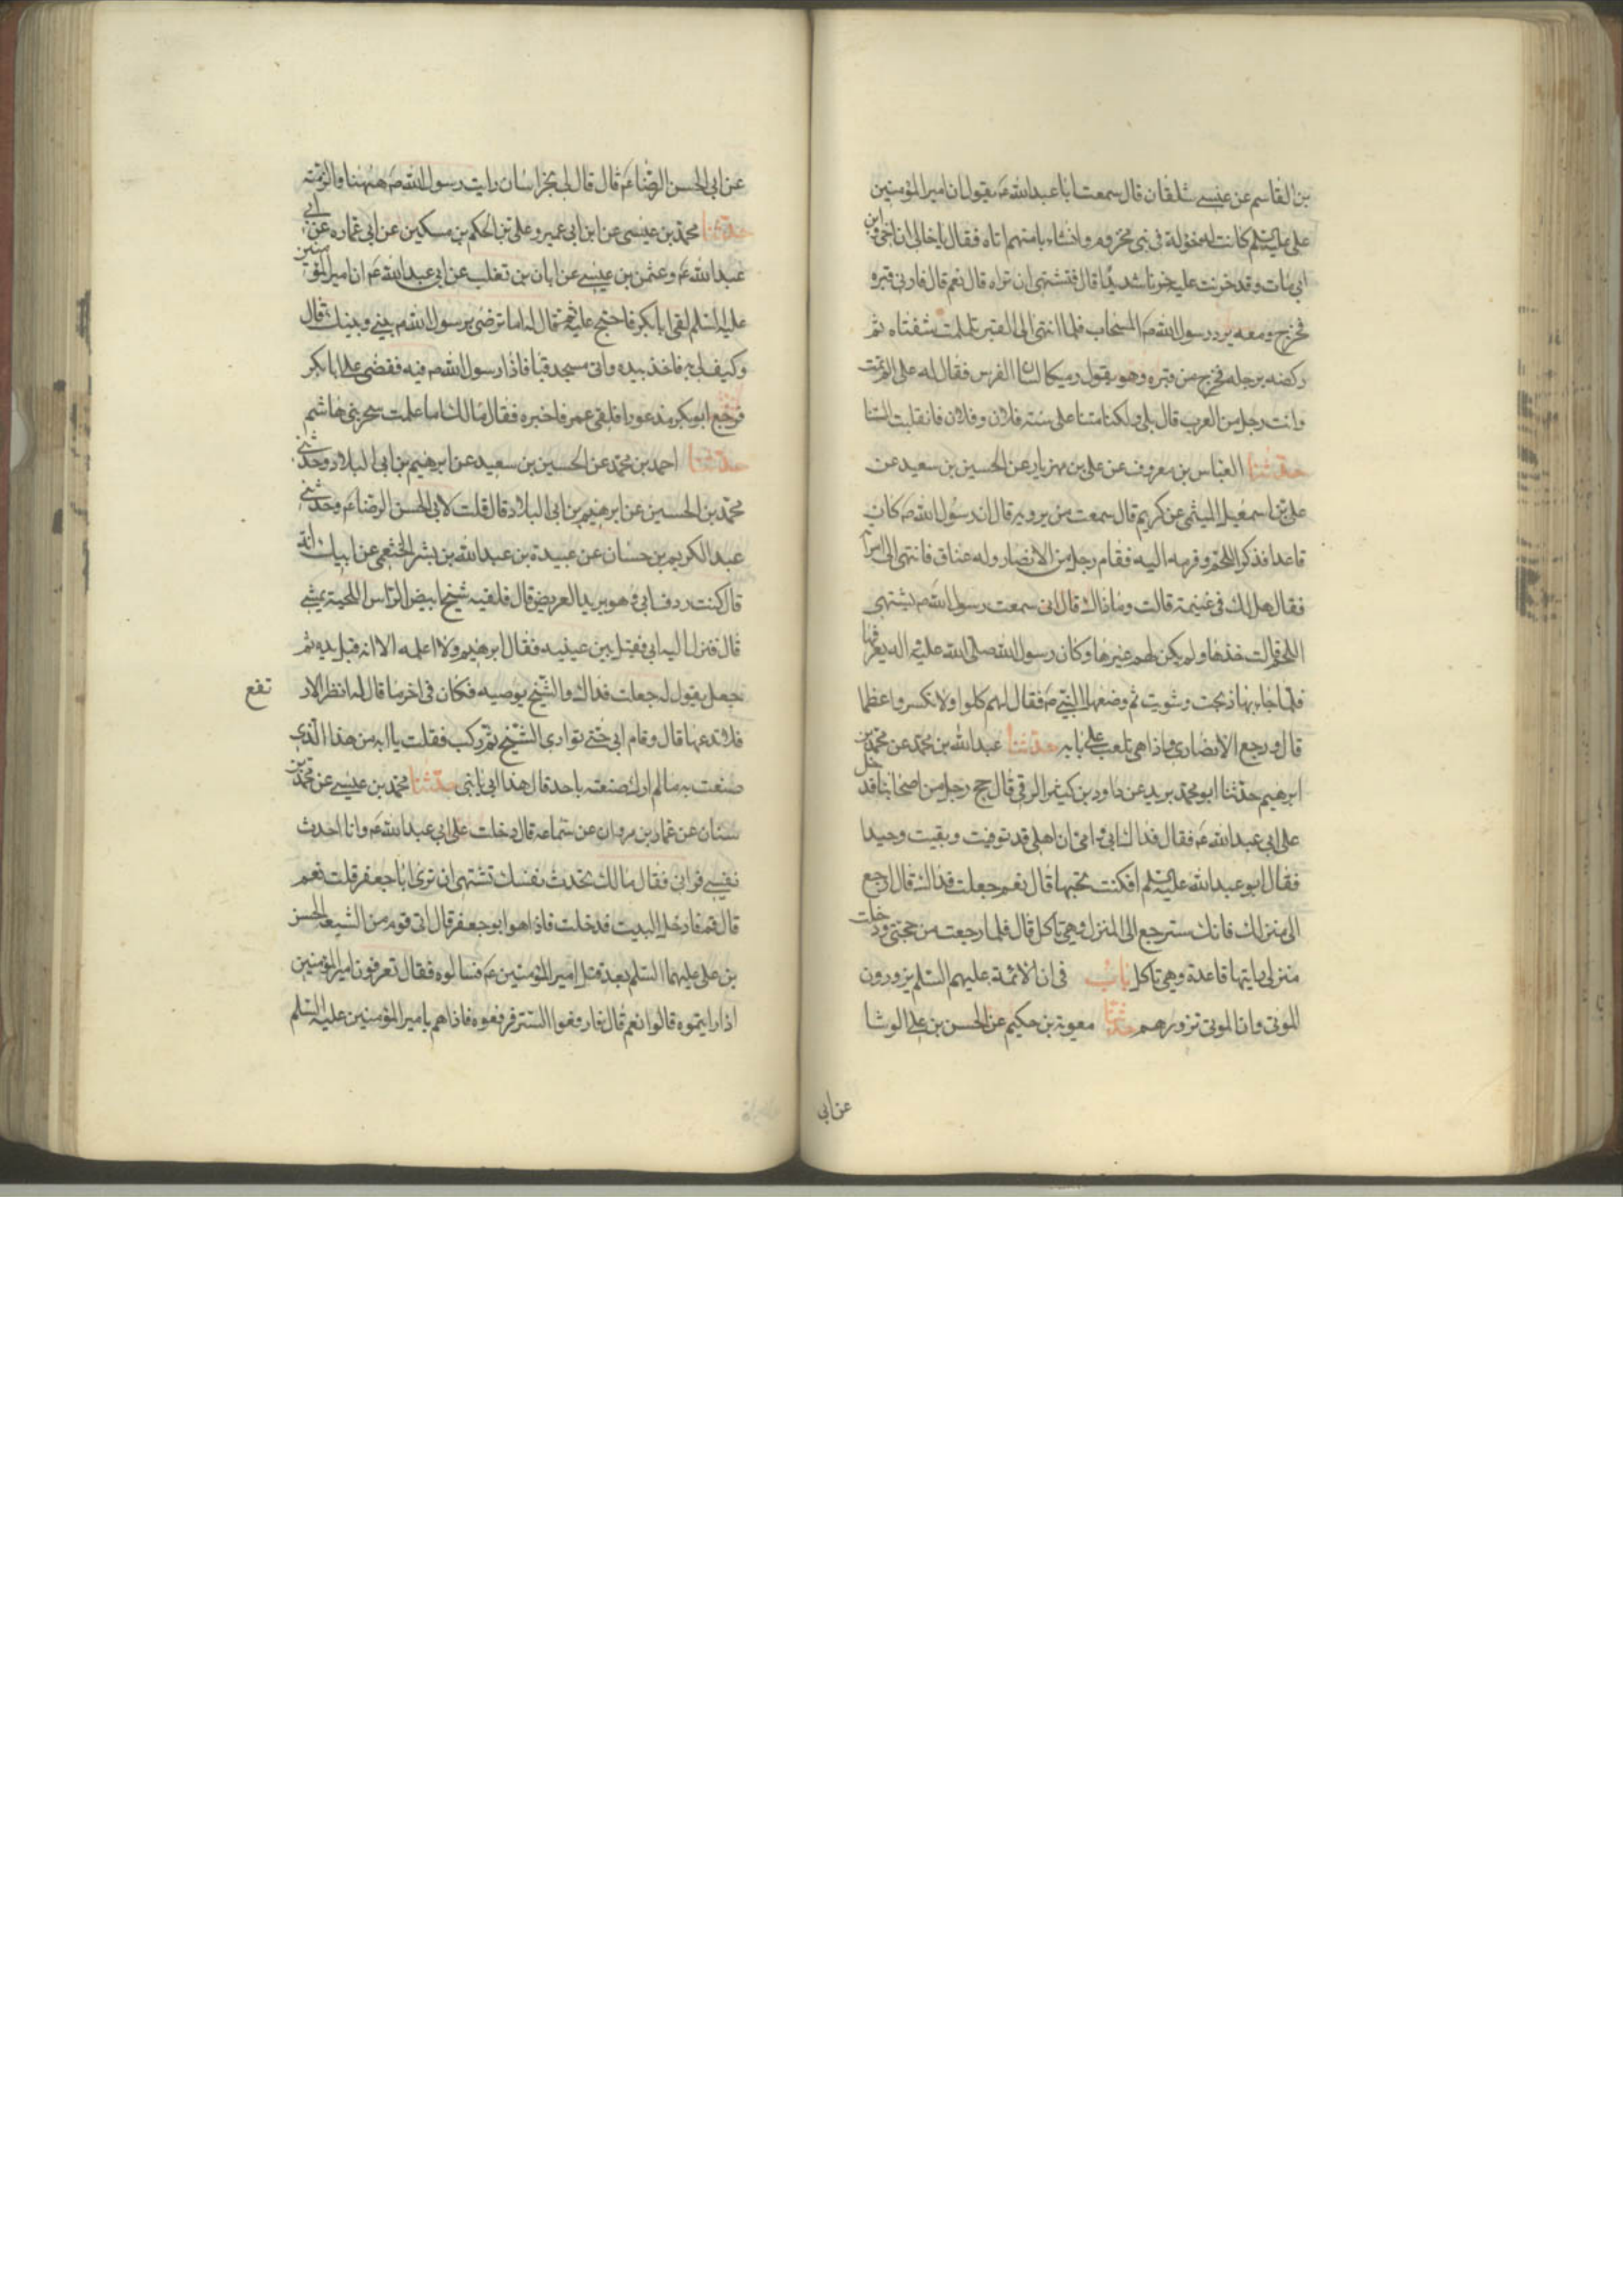 بن القاسم عن عيسى شلقان قال سمعت ابا عبدالله ع يقول ان امير المؤمنين
على عليه السلم كانت له خؤولة فى بنى مخزوم وان شابا منهم اتاه فقال يا خالى ان اخى وابن
ابى مات وقد حزنت عليه حزنا شديدا قال فتشتهى ان تراه قال نعم قال فارنى قبره
فخرج ومعه برد رسول الله ص السحاب فلما انتهى الى القبر تلملمت شفتاه ثم
ركضه برجله فخرج من قبره وهو يقول رميكا لسان الفرس فقال له على الم تمت
وانت رجل من العرب قال بلى ولكنا متنا على سنه فلان وفلان فانقلبت السنتنا
حدثنا العباس بن معروف عن على بن مهزيار عن الحسين بن سعيد عن
على بن اسمعيل الميثمى عن كريم قال سمعت من يرويه قال ان رسول الله ص كان
قاعدا فذكر اللحم وقرمه اليه فقام رجل من الانصار وله عناق فانتهى الى امراته
فقال هل لك فى غنيمة قالت وما ذاك قال انى سمعت رسول الله ص يشتهى
اللحم قالت خذها ولم يكن لهم غيرها وكان رسول الله صلى الله عليه واله يعرفها
فلما جاء بها ذبحت وشويت ثم وضعها النبى ص فقال لهم كلوا ولا تكسروا عظما
قال ورجع الانصارى واذا هى تلعب على بابه حدثنا عبدالله بن محمد عن محمد بن
ابرهيم حدثنا ابو محمد بريد عن داود بن كثير الرقى قال حج رجل من اصحابنا فدخل
على ابى عبدالله ع فقال فداك ابى وامى ان اهلى قد توفيت وبقيت وحيدا
فقال ابو عبدالله عليه السلم افكنت تحبها قال نعم جعلت فداك قال ارجع
الى منزلك فانك سترجع الى المنزل وهى تاكل قال فلما رجعت من حجتى ودخلت
منزلى رايتها قاعدة وهى تاكل باب فى ان الائمة عليهم السلم يزورون
الموتى وان الموتى تزورهم حدثنا معوية بن حكيم عن الحسن بن على الوشا
عن ابى
عن ابى الحسن الرضا ع قال قال لى بخراسان رايت رسول الله ص ههنا والتزمته
حدثنا محمد بن عيسى عن ابن ابى عمير وعلى بن الحكم بن مسكين عن ابى عماره عن ابى
عبدالله ع وعثمن بن عيسى عن ابان بن تغلب عن ابى عبدالله ع ان امير المؤمنين
عليه السلم لقى ابابكر فاحتج عليه ثم قال له اما ترضى برسول الله ص بينى وبينك قال
وكيف لى به فاخذ بيده واتى مسجد قبا فاذا رسول الله ص فيه فقضى على ابابكر
فرجع ابوبكر مذعورا فلقى عمر فاخبره فقال مالك اما علمت سحر بنى هاشم
حدثنا احمد بن محمد عن الحسين بن سعيد عن ابرهيم بن ابى البلاد وحدثنى
محمد بن الحسين عن ابرهيم بن ابى البلاد قال قلت لابى الحسن الرضا ع وحدثنى
عبد الكريم بن حسان عن عبيدة بن عبدالله بن بشر الخثعمى عن ابيك انه
قال كنت ردف ابى وهو يريد العريض قال فلقيه شيخ ابيض الراس اللحية يمشى
قال فنزل اليه ابى فقبل بين عينيه فقال ابرهيم ولا اعلمه الا انه قبل يده ثم
جعل يقول له جعلت فداك والشيخ يوصيه فكان فى اخر ما قال له انظر الار
تفع
فلا تدعها قال وقام ابى حتى توارى الشيخ ثم ركب فقلت يا ابه من هذا الذى
صنعت به ما لم ارك صنعته باحد قال هذا ابى يا بنى حدثنا محمد بن عيسى عن محمد بن
سنان عن عمار بن مروان عن سماعه قال دخلت على ابى عبدالله ع وانا احدث
نفسى فرانى فقال مالك تحدث نفسك تشتهى ان ترى ابا جعفر قلت نعم
قال قم فادخل البيت فدخلت فاذا هو ابو جعفر قال اتى قوم من الشيعه الحسن
بن على عليهما السلم بعد قتل امير المؤمنين ع فسالوه فقال تعرفون امير المؤمنين
اذا رايتموه قالوا نعم قال فارفعوا الستر فرفعوه فاذا هم بامير المؤمنين عليه السلم